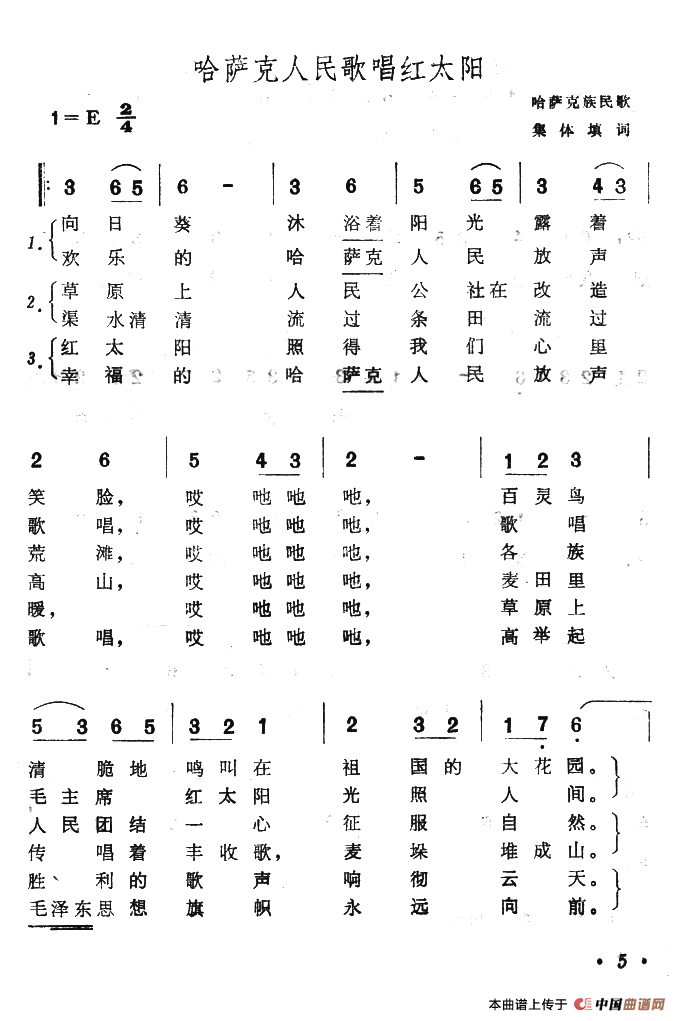 哈萨克人民歌唱红太阳
1=E 2/4
哈萨克族民歌
集体填词
3 6 5 6 - 3 6 5 6 5 3 4 3
1. 向日葵 沐浴着阳光露着
欢乐的 哈萨克人民放声
2. 草原上 人民公社在改造
渠水清清 流过条田流过
3. 红太阳 照得我们心里
幸福的 哈萨克人民放声
2 6 5 4 3 2 - 1 2 3
笑脸, 哎吔吔吔, 百灵鸟
歌唱, 哎吔吔吔, 歌唱
荒滩, 哎吔吔吔, 各族
高山, 哎吔吔吔, 麦田里
暖, 哎吔吔吔, 草原上
歌唱, 哎吔吔吔, 高举起
5 3 6 5 3 2 1 2 3 2 1 7 6
清脆地鸣叫在祖国的大花园。
毛主席红太阳光照人间。
人民团结一心征服自然。
传唱着丰收歌,麦垛堆成山。
胜利的歌声响彻云天。
毛泽东思想旗帜永远向前。
· 5 ·
本曲谱上传于 中国曲谱网